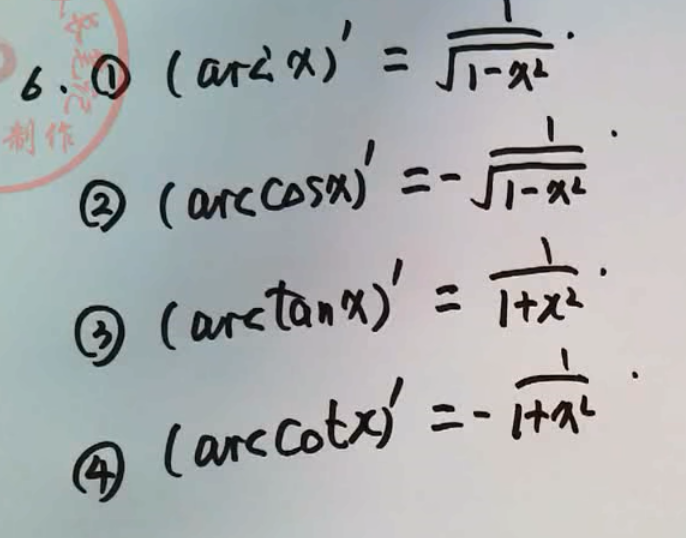 6. ① (arc x)' = 1/√(1-x²).
② (arccosx)' = -1/√(1-x²).
③ (arctanx)' = 1/(1+x²).
④ (arccotx)' = -1/(1+x²).
笔记
制作